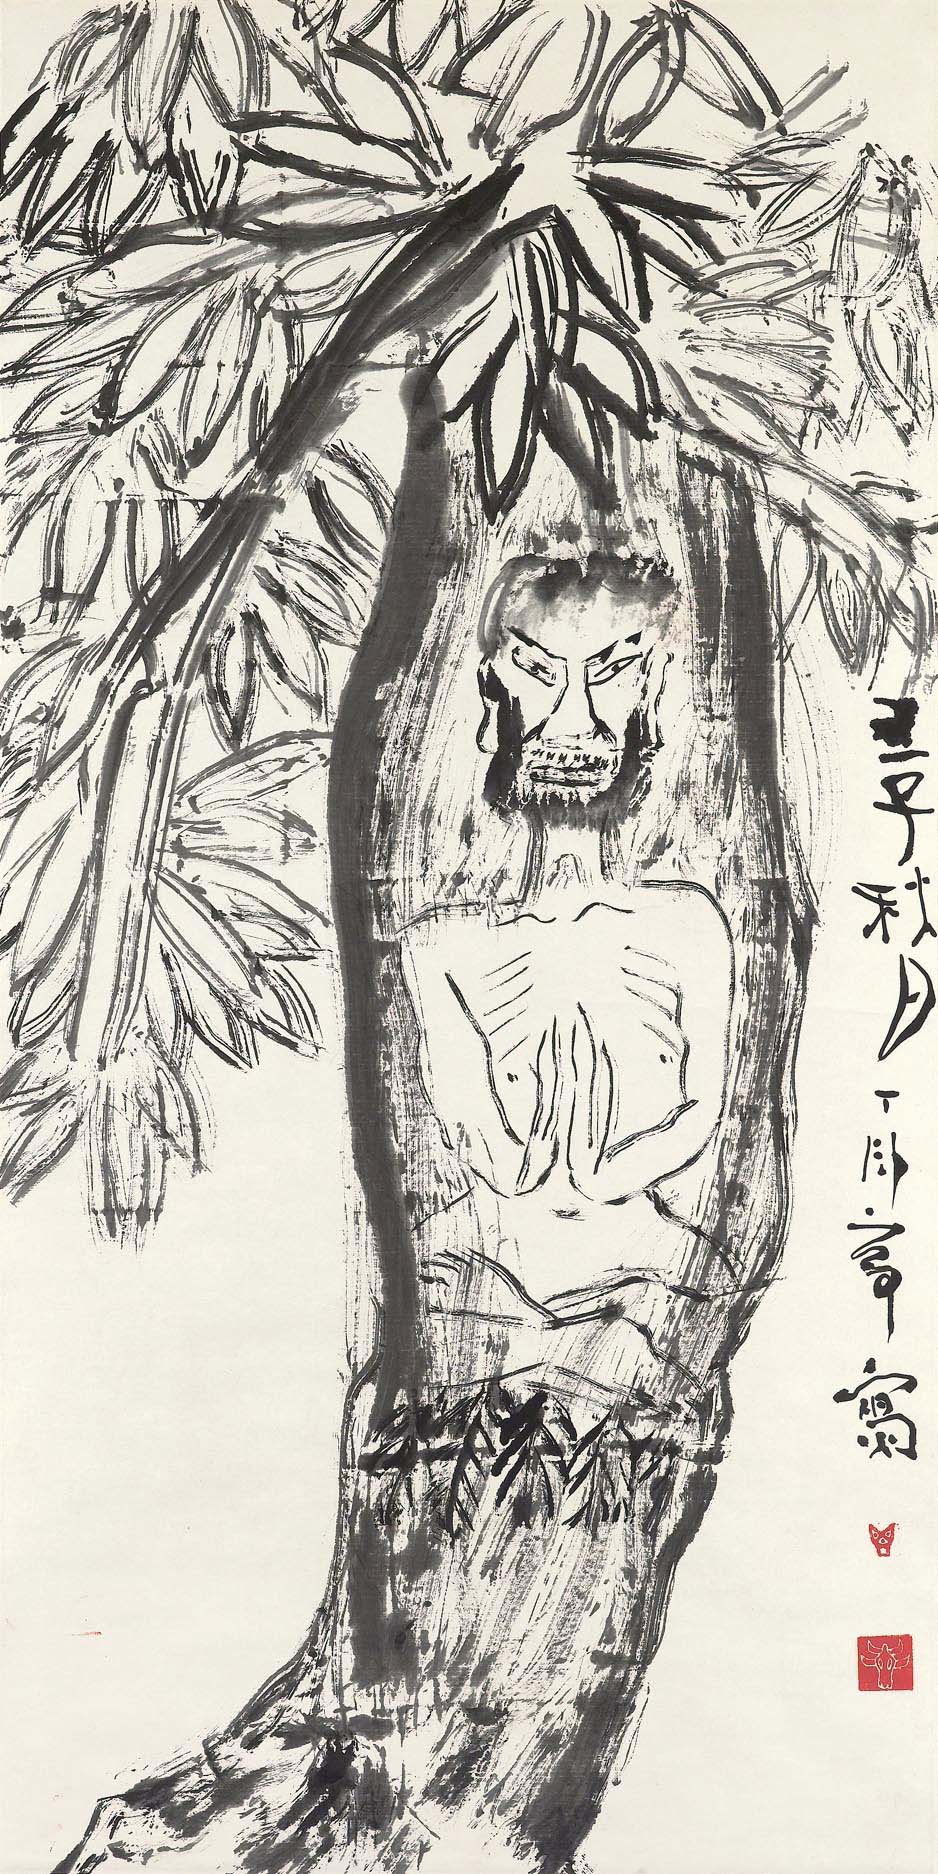 壬子秋月丁衍庸寫